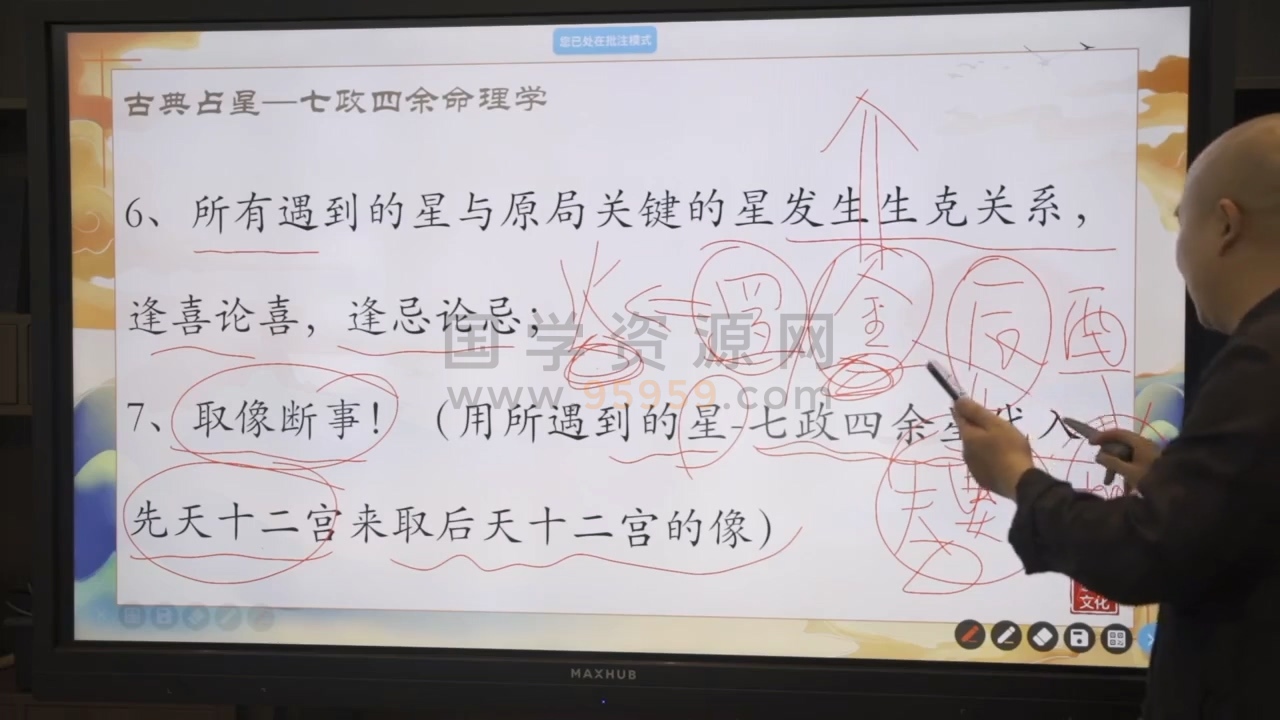 您已处在批注模式
古典占星—七政四余命理学
6、所有遇到的星与原局关键的星发生生克关系，
逢喜论喜，逢忌论忌；
火 罗 金 酉
国学资源网
www.95959.com
7、取像断事！（用所遇到的星-七政四余星代入
夫妻
先天十二宫来取后天十二宫的像）
文化
MAXHUB